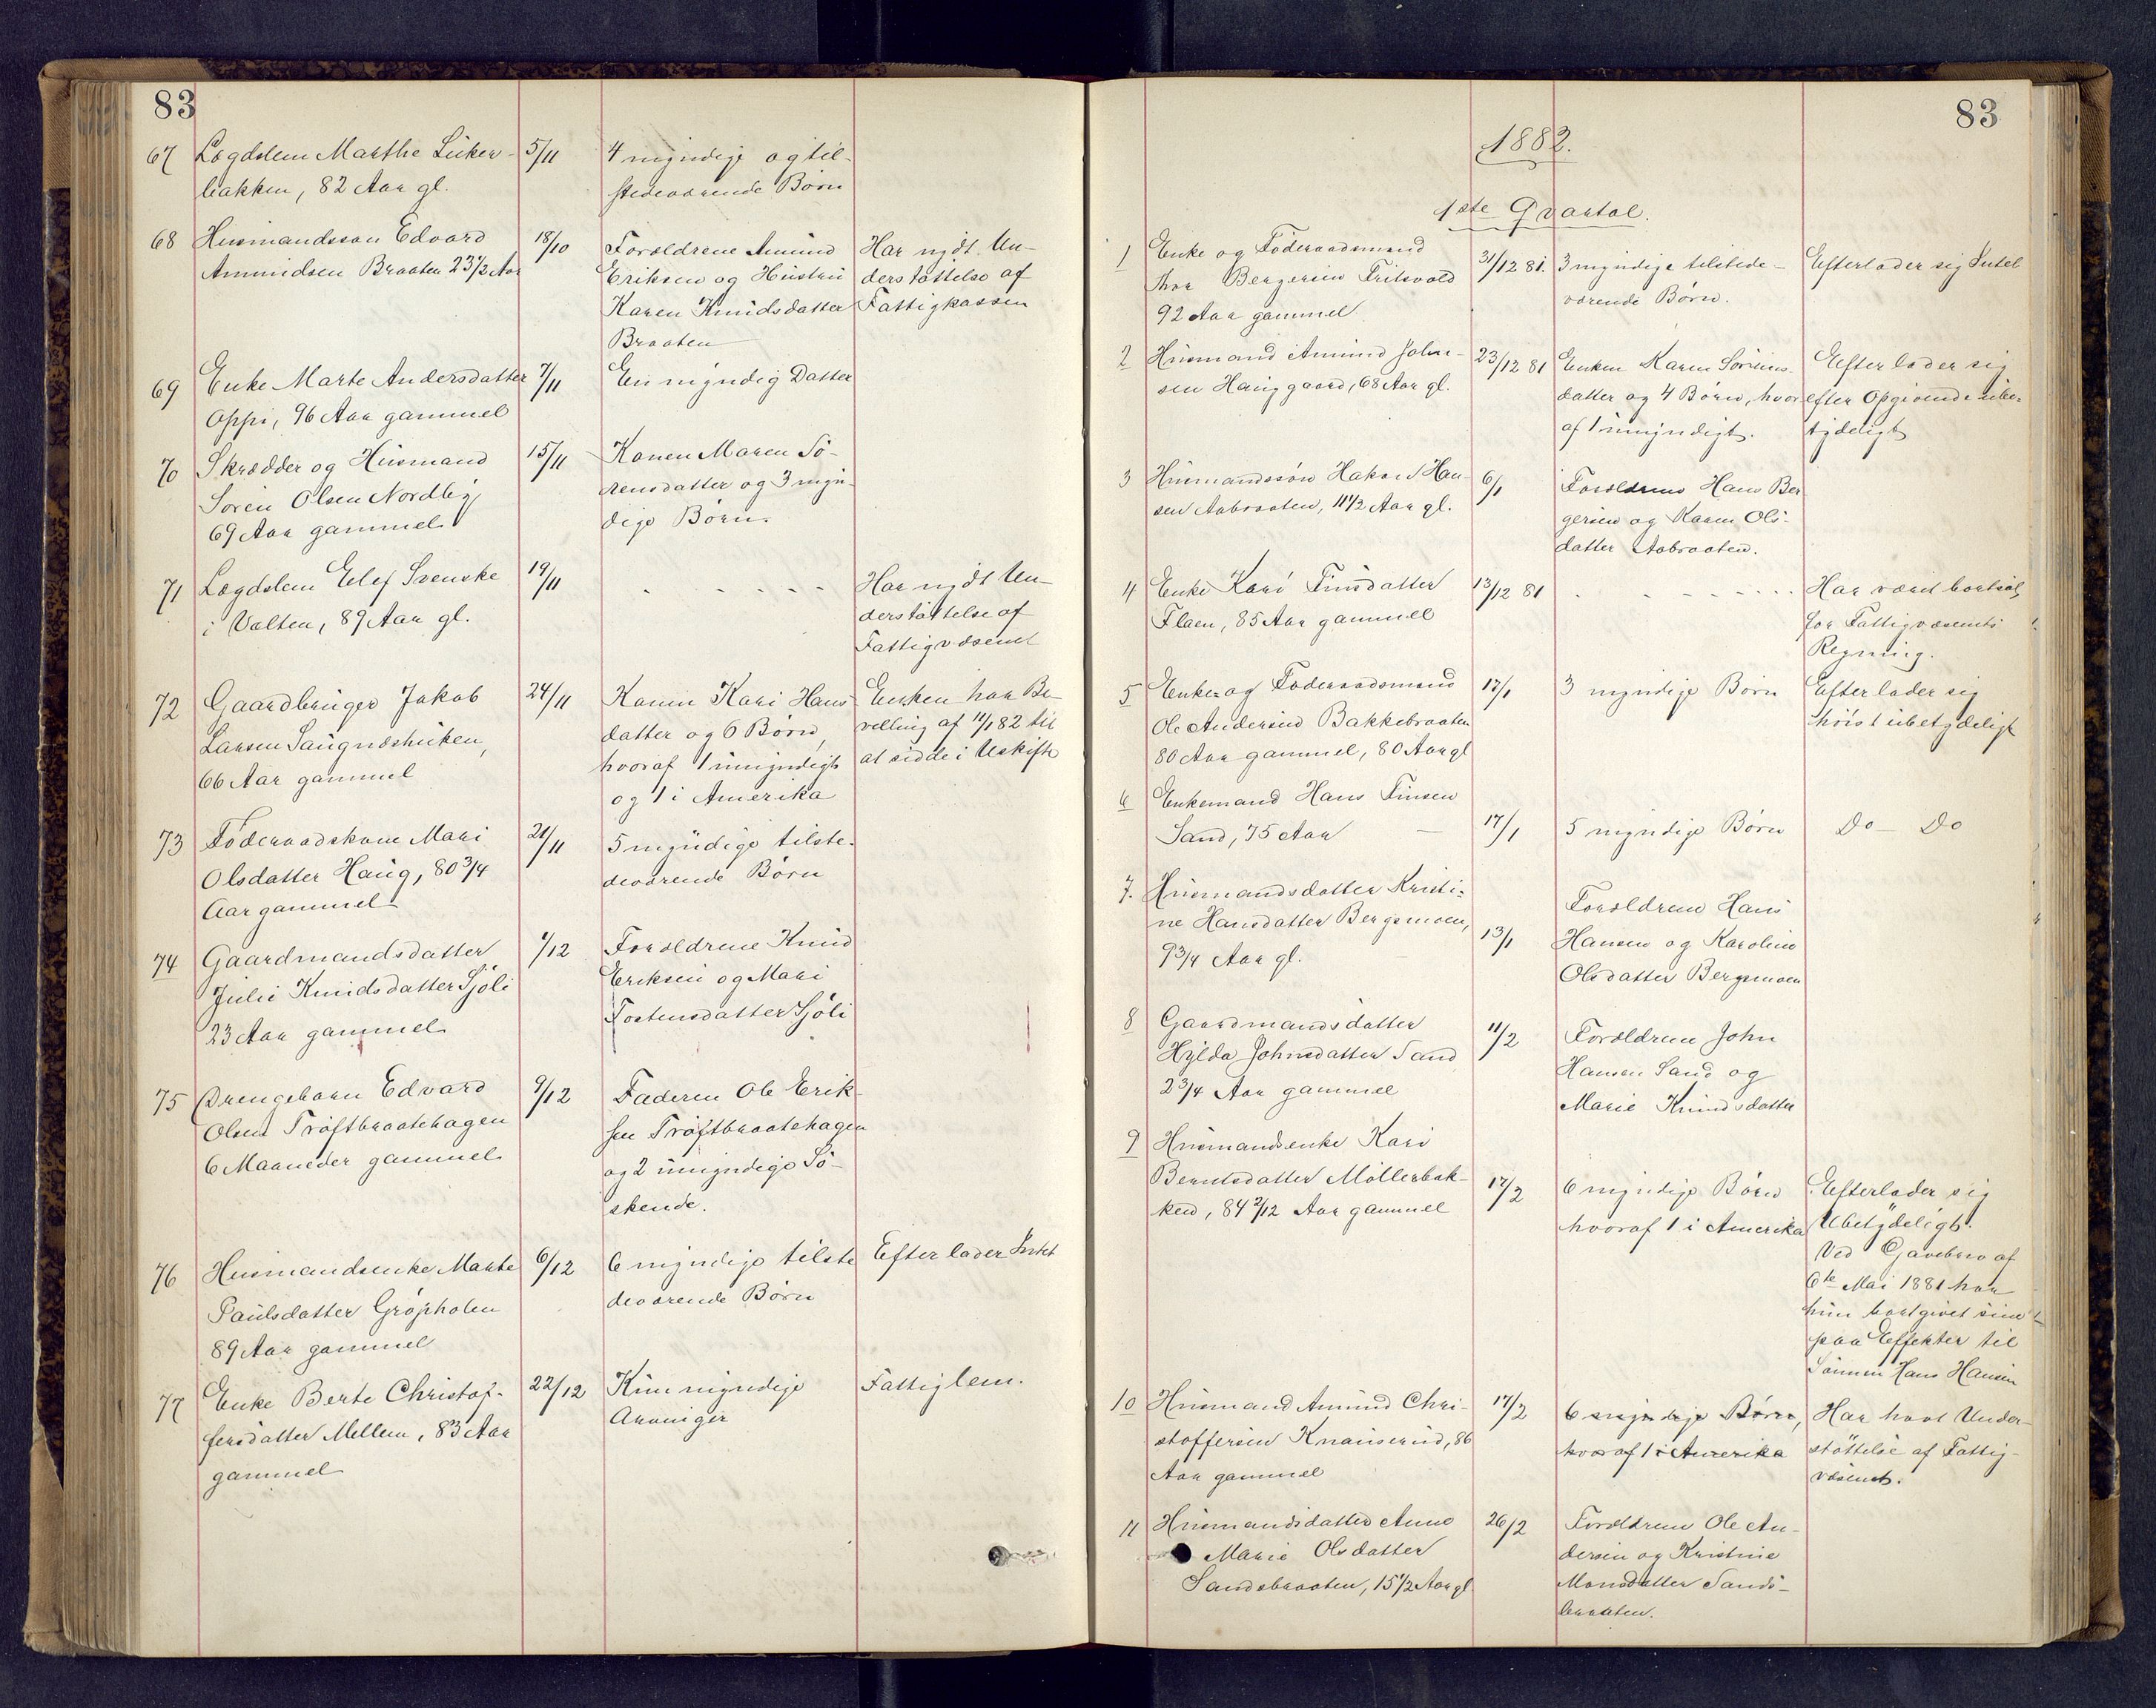 83
67 Lægdslem Marthe Luker- 5/11 4 myndige og til-
bakken, 82 Aar gl. stedeværende Børn
68 Husmandssøn Edvard 18/10 Forældrene Amund Har nydt Un-
Ammundsen Braaten 23 1/2 Aar Eriksen og Hustru derstøttelse af
Karen Knudsdatter Fattigkassen
Braaten
69 Enke Marte Andersdatter 7/11 En myndig Datter
Oppi, 96 Aar gammel
70 Skrædder og Husmand 15/11 Konen Maren Sø-
Søren Olsen Nordby rensdatter og 3 myn-
69 Aar gammel dige Børn.
71 Lægdslem Elef Svenske 19/11 - - - - - - Har nydt Un-
i Valten, 89 Aar gl. derstøttelse af
Fattigvæsenet
72 Gaardbruger Jakob 24/11 Konen Kari Hans- Enken har Be-
Larsen Saugnæshuken, datter og 6 Børn, villing af 11/1 82 til
66 Aar gammel hvoraf 1 umyndigt at sidde i Uskifte
og 1 i Amerika
73 Føderaadskone Mari 21/11 5 myndige tilste-
Olsdatter Haug, 80 3/4 deværende Børn
Aar gammel
74 Gaardmandsdatter 1/12 Forældrene Knud
Julie Knudsdatter Sjøli Eriksen og Mari
23 Aar gammel Tostensdatter Sjøli
75 Drengebarn Edvard 9/12 Faderen Ole Erik-
Olsen Trøftbraatehagen sen Trøftbraatehagen
6 Maaneder gammel og 2 umyndige Sø-
skende.
76 Husmandsenke Marte 6/12 6 myndige tilste Efterlader Intet
Paulsdatter Grøpholen deværende Børn
89 Aar gammel
77 Enke Berte Christof- 22/12 Kun myndige Fattiglem.
fersdatter Mellem, 83 Aar Arvinger
gammel
83
1882.
1ste Qvartal.
1 Enke og Føderaadsmand 31/12 81. 3 myndige tilstede- Efterlader sig Intet
Thor Bergersen Fritsvold værende Børn.
92 Aar gammel
2 Husmand Amund John- 23/12 81 Enken Karen Sørens- Efterlader sig
sen Hauggaard, 68 Aar gl. datter og 4 Børn, hvor efter Opgivende ube-
af 1 umyndigt. tydeligt
3 Husmandssøn Hakon Han- 6/1 Forældrene Hans Ber
sen Aabraaten, 11 1/2 Aar gl. gersen og Karen Ols-
datter Aabraaten.
4 Enke Kari Finsdatter 13/12 81 - - - - - - - Har været bortsat
Flaen, 85 Aar gammel for Fattigvæsenets
Regning.
5 Enke og Føderaadsmand 17/1 3 myndige Børn Efterlader sig
Ole Andersen Bakkebraaten høist ubetydeligt
80 Aar gammel, 80 Aar gl
6 Enkemand Hans Finsen
Sand, 75 Aar — 17/1 5 myndige Børn Do — Do
7. Husmandsdatter Kristi- Forældrene Hans
ne Hansdatter Bergsmoen, 13/1 Hansen og Karoline
9 3/4 Aar gl. Olsdatter Bergsmoen
8 Gaardmandsdatter 11/2 Forældrene John
Hylda Johnsdatter Sand Hansen Sand og
2 3/4 Aar gammel Marie Knudsdatter
9 Husmandsenke Kari
Berntsdatter Møllerbak- 17/2 6 myndige Børn Efterlader sig
ken, 84 2/12 Aar gammel hvoraf 1 i Amerika Ubetydeligt.
Ved Gavebrev af
6te Mai 1881 har
hun bortgivet sine
paa Effekter til
Sønnen Hans Hansen
10 Husmand Amund Chri- 17/2 6 myndige Børn, Har havt Under-
stoffersen Knauserud, 86 hvoraf 1 i Amerika støttelse af Fattig-
Aar gammel væsenet.
11 Husmandsdatter Anne 26/2 Forældrene Ole An-
Marie Olsdatter dersen og Kristine
Sandsbraaten, 15 1/2 Aar gl. Monsdatter Sands-
braaten.